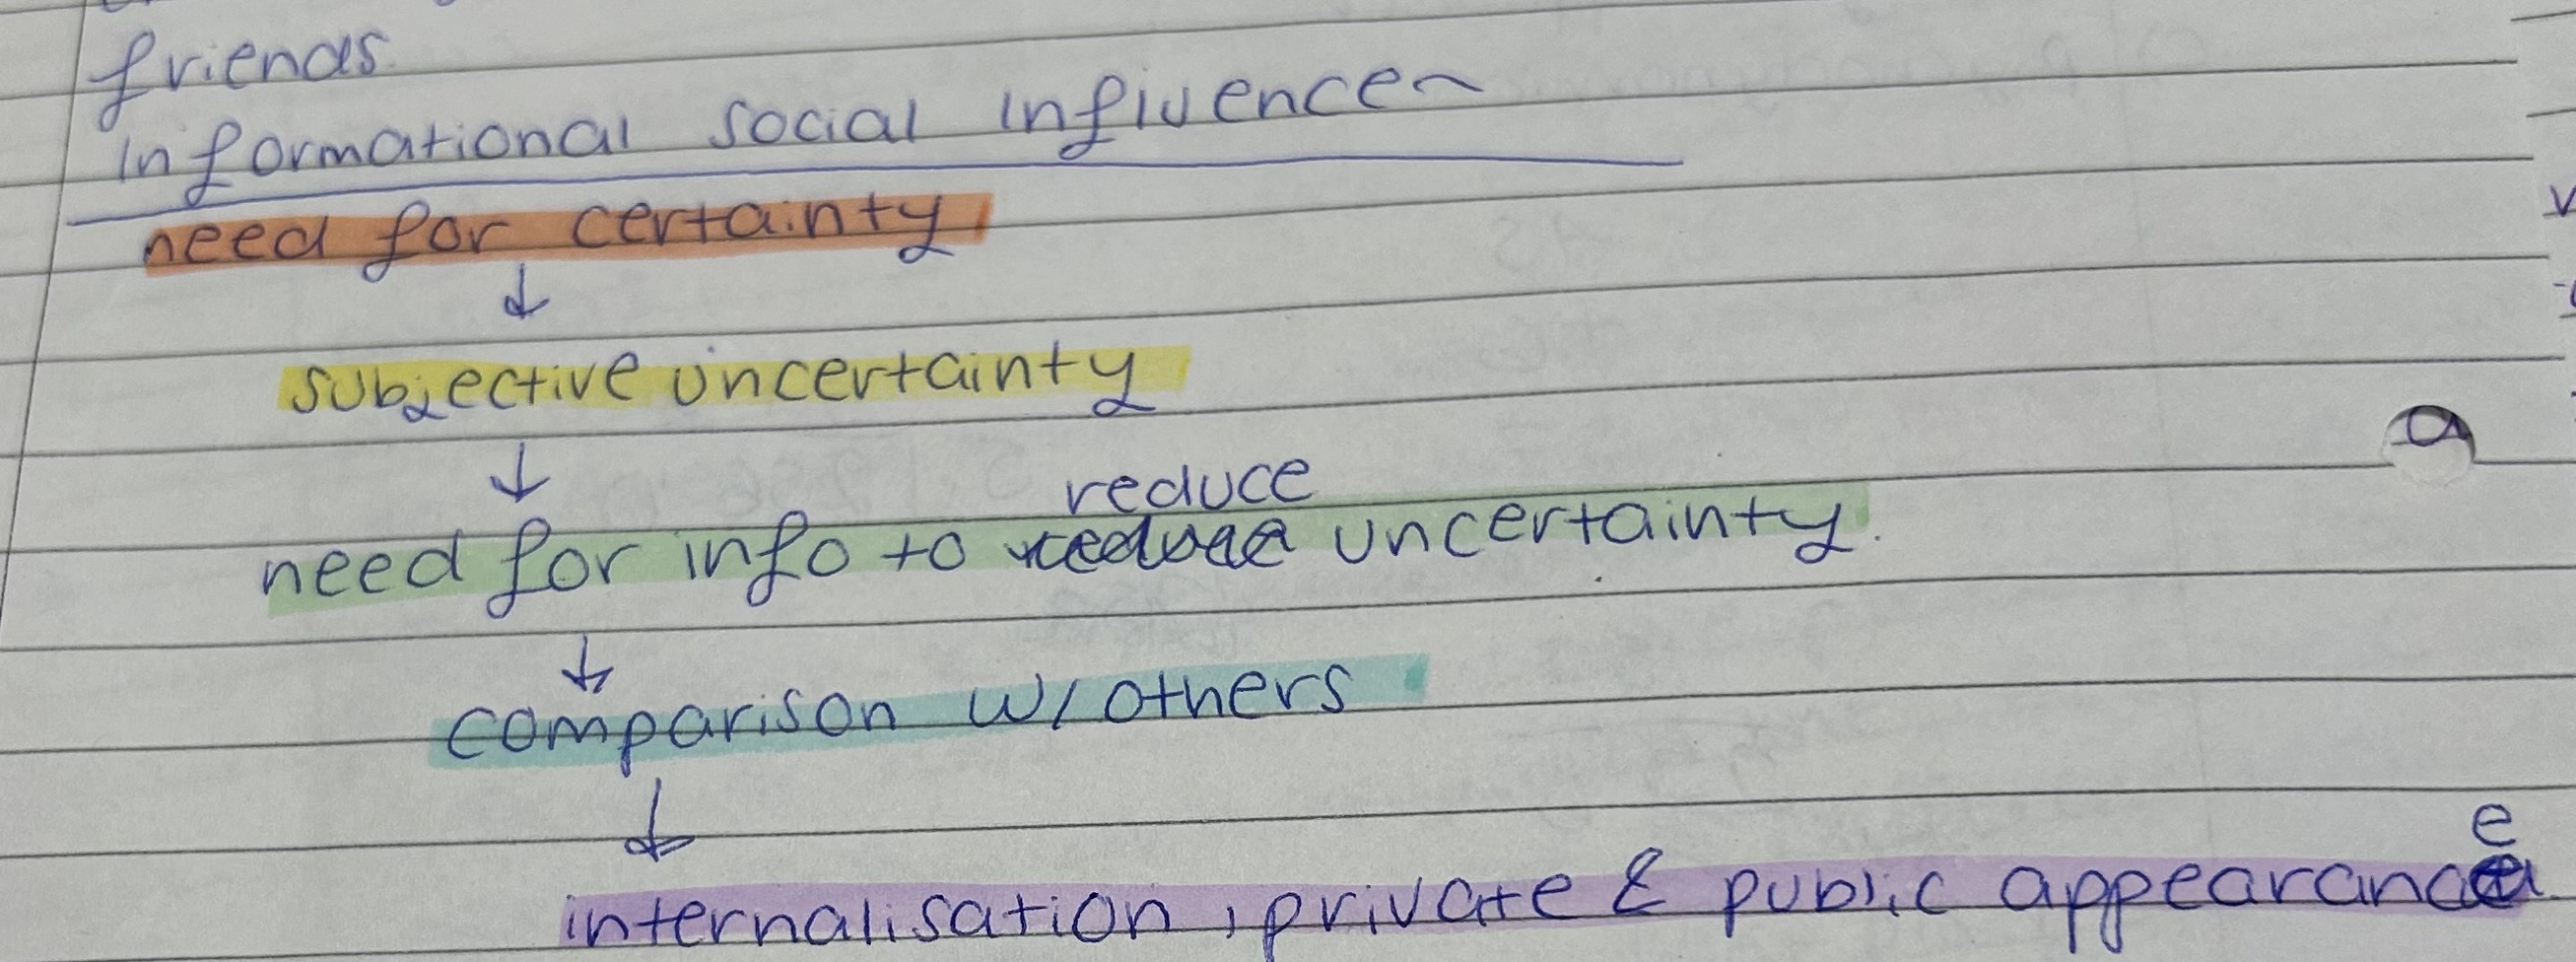 friends.
Informational social influence~
need for certainty
↓
subjective uncertainty
↓
reduce
need for info to uncertainty.
↓
comparison w/ others
↓
e
internalisation, private & public appearance